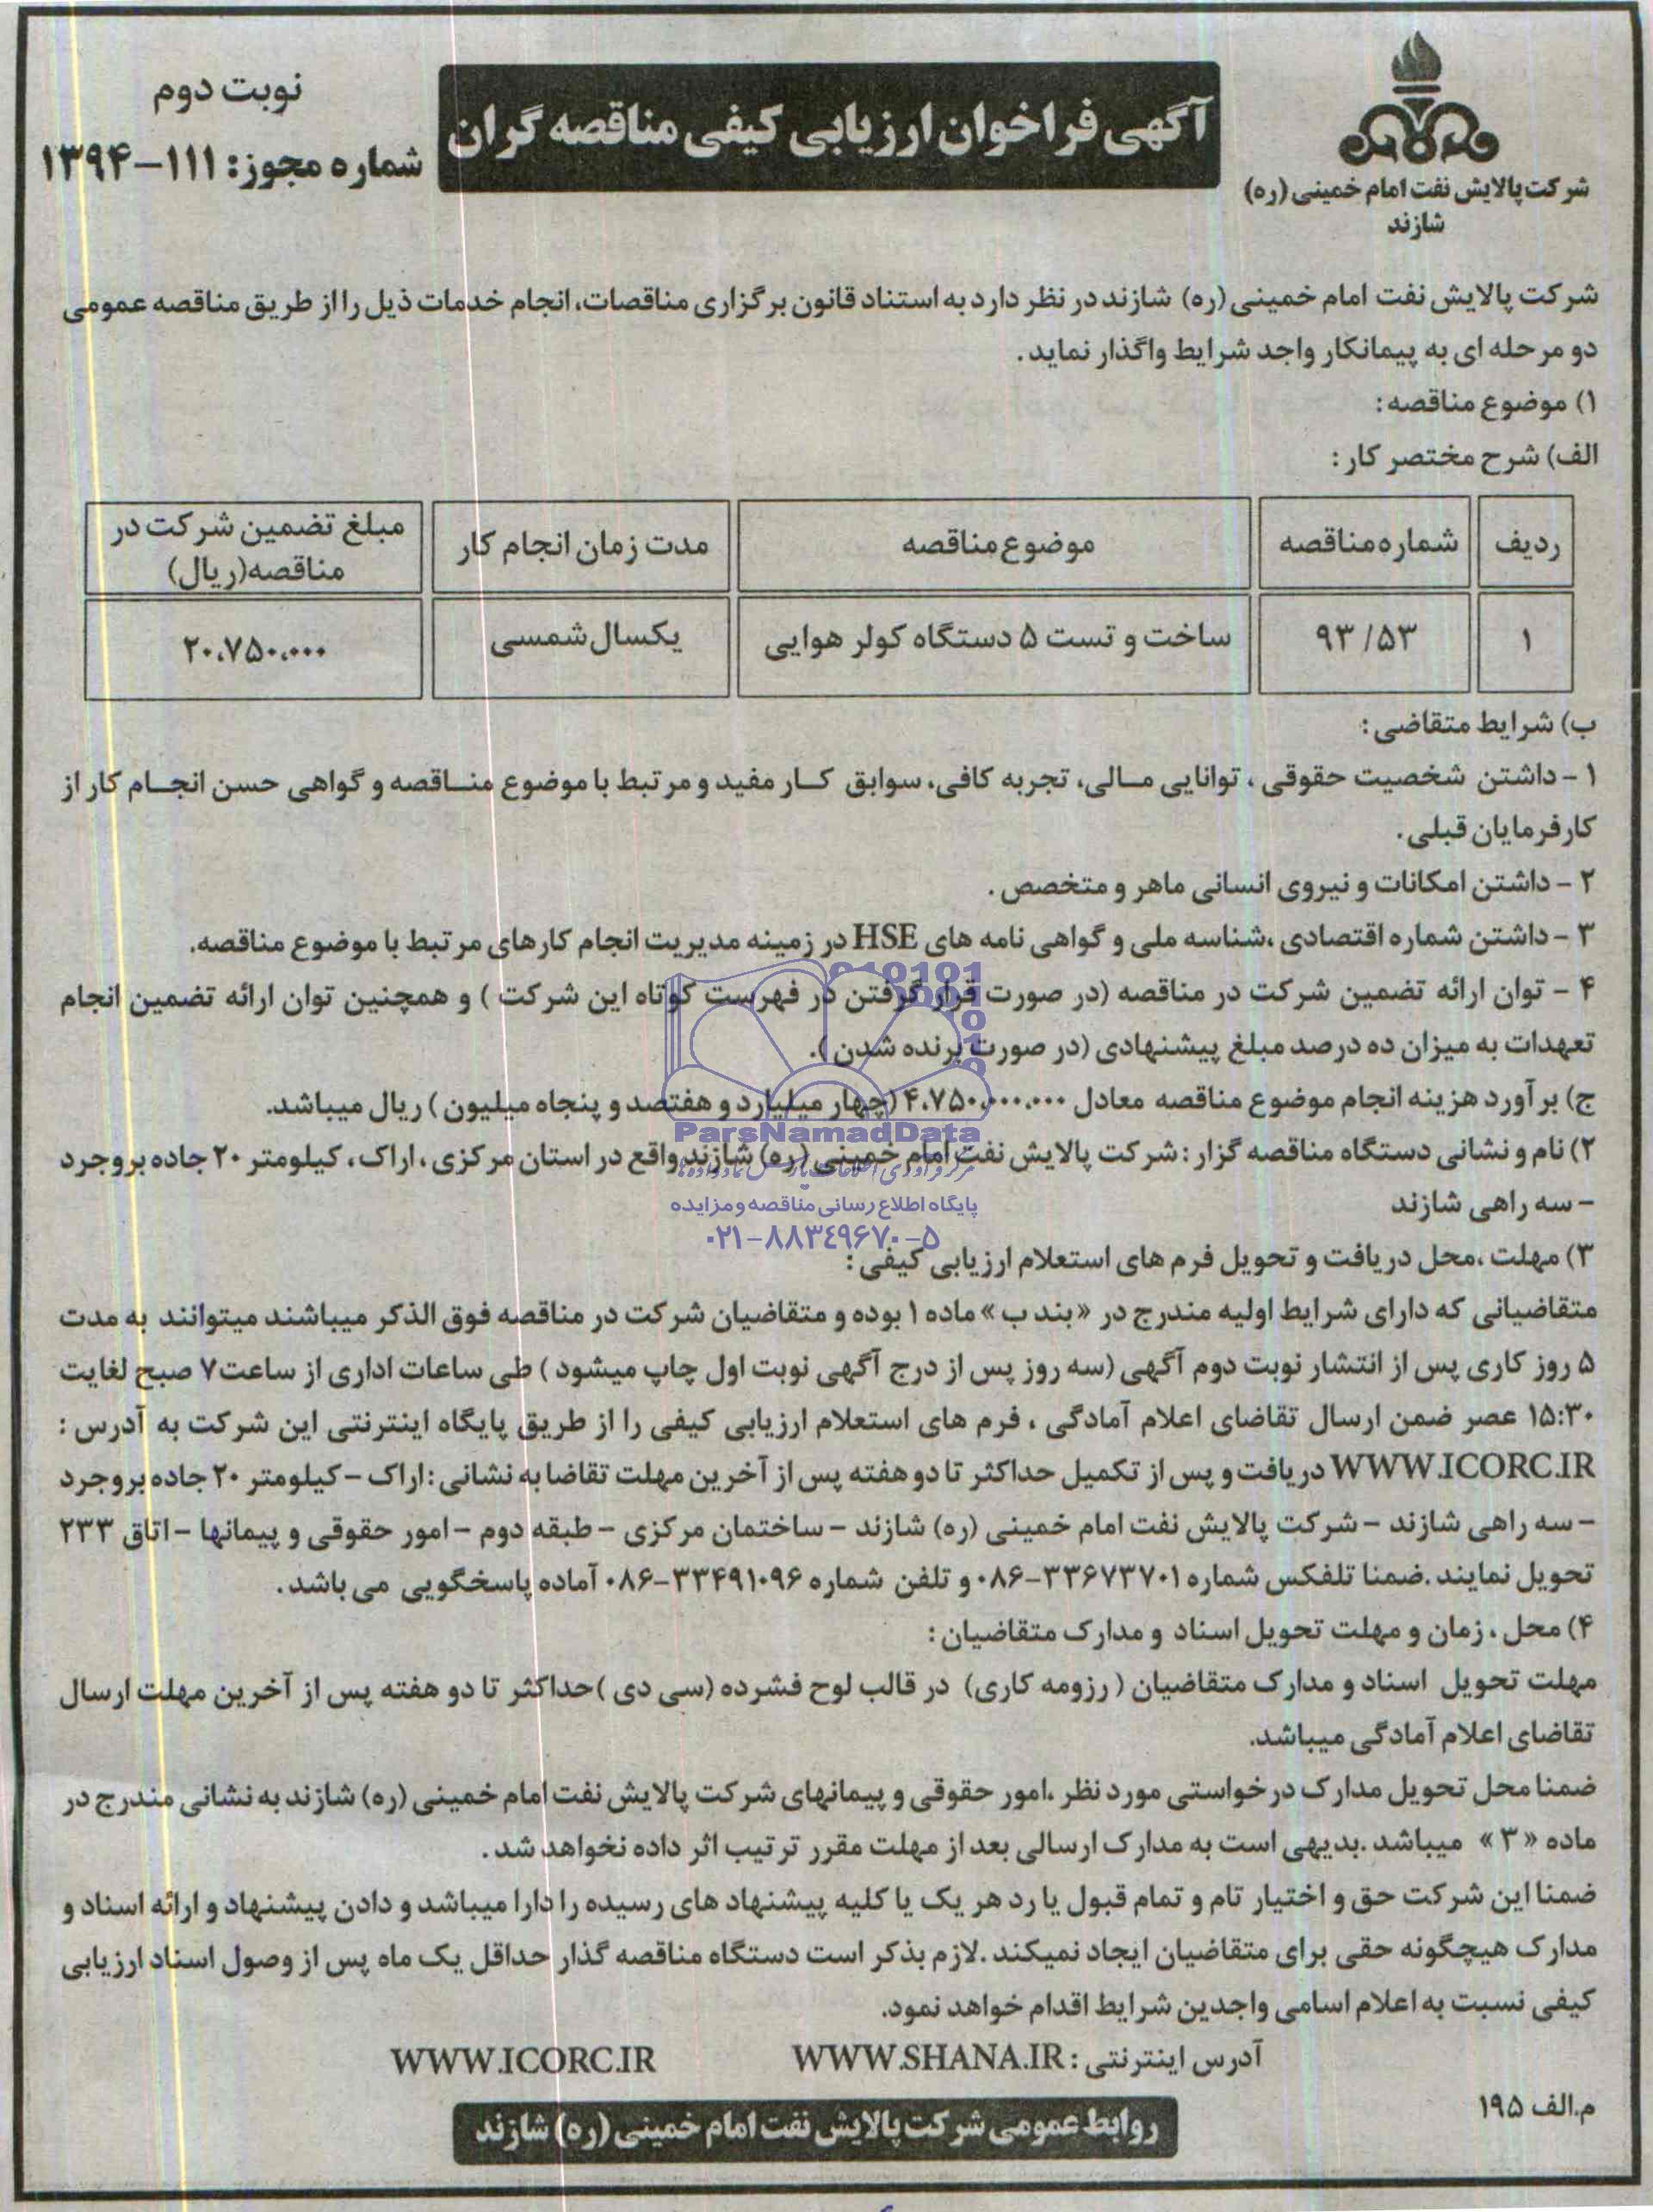 شرکت پالایش نفت امام خمینی (ره)
شازند
آگهی فراخوان ارزیابی کیفی مناقصه گران
نوبت دوم
شماره مجوز: ۱۱۱-۱۳۹۴
شرکت پالایش نفت امام خمینی (ره) شازند در نظر دارد به استناد قانون برگزاری مناقصات، انجام خدمات ذیل را از طریق مناقصه عمومی
دو مرحله ای به پیمانکار واجد شرایط واگذار نماید.
۱) موضوع مناقصه:
الف) شرح مختصر کار:
ردیف شماره مناقصه موضوع مناقصه مدت زمان انجام کار مبلغ تضمین شرکت در مناقصه(ریال)
۱ ۹۳/۵۳ ساخت و تست ۵ دستگاه کولر هوایی یکسال شمسی ۲۰،۷۵۰،۰۰۰
ب) شرایط متقاضی:
۱ - داشتن شخصیت حقوقی ، توانایی مـالی، تجربه کافی، سوابق کـار مفید و مرتبط با موضوع منـاقصه و گواهی حسن انجـام کار از
کارفرمایان قبلی.
۲ - داشتن امکانات و نیروی انسانی ماهر و متخصص .
۳ - داشتن شماره اقتصادی ،شناسه ملی و گواهی نامه های HSE در زمینه مدیریت انجام کارهای مرتبط با موضوع مناقصه.
۴ - توان ارائه تضمین شرکت در مناقصه (در صورت قرار گرفتن در فهرست کوتاه این شرکت ) و همچنین توان ارائه تضمین انجام
تعهدات به میزان ده درصد مبلغ پیشنهادی (در صورت برنده شدن ).
ج) برآورد هزینه انجام موضوع مناقصه معادل ۴،۷۵۰،۰۰۰،۰۰۰ (چهار میلیارد و هفتصد و پنجاه میلیون ) ریال میباشد.
ParsNamadData
۲) نام و نشانی دستگاه مناقصه گزار : شرکت پالایش نفت امام خمینی (ره) شازند واقع در استان مرکزی ، اراک، کیلومتر ۲۰ جاده بروجرد
- سه راهی شازند
پایگاه اطلاع رسانی مناقصه و مزایده
۰۲۱-۸۸۳۴۹۶۷۰-۵
۳) مهلت ،محل دریافت و تحویل فرم های استعلام ارزیابی کیفی :
متقاضیانی که دارای شرایط اولیه مندرج در «بند ب» ماده ۱ بوده و متقاضیان شرکت در مناقصه فوق الذکر میباشند میتوانند به مدت
۵ روز کاری پس از انتشار نوبت دوم آگهی (سه روز پس از درج آگهی نوبت اول چاپ میشود ) طی ساعات اداری از ساعت ۷ صبح لغایت
۱۵:۳۰ عصر ضمن ارسال تقاضای اعلام آمادگی ، فرم های استعلام ارزیابی کیفی را از طریق پایگاه اینترنتی این شرکت به آدرس :
WWW.ICORC.IR دریافت و پس از تکمیل حداکثر تا دو هفته پس از آخرین مهلت تقاضا به نشانی : اراک - کیلومتر ۲۰ جاده بروجرد
- سه راهی شازند - شرکت پالایش نفت امام خمینی (ره) شازند - ساختمان مرکزی - طبقه دوم - امور حقوقی و پیمانها - اتاق ۲۳۳
تحویل نمایند .ضمنا تلفکس شماره ۳۳۶۷۳۷۰۱-۰۸۶ و تلفن شماره ۳۳۴۹۱۰۹۶-۰۸۶ آماده پاسخگویی می باشد .
۴) محل ، زمان و مهلت تحویل اسناد و مدارک متقاضیان :
مهلت تحویل اسناد و مدارک متقاضیان ( رزومه کاری) در قالب لوح فشرده (سی دی )حداکثر تا دو هفته پس از آخرین مهلت ارسال
تقاضای اعلام آمادگی میباشد.
ضمنا محل تحویل مدارک درخواستی مورد نظر ،امور حقوقی و پیمانهای شرکت پالایش نفت امام خمینی (ره) شازند به نشانی مندرج در
ماده « ۳» میباشد .بدیهی است به مدارک ارسالی بعد از مهلت مقرر ترتیب اثر داده نخواهد شد .
ضمنا این شرکت حق و اختیار تام و تمام قبول یا رد هر یک یا کلیه پیشنهاد های رسیده را دارا میباشد و دادن پیشنهاد و ارائه اسناد و
مدارک هیچگونه حقی برای متقاضیان ایجاد نمیکند .لازم بذکر است دستگاه مناقصه گذار حداقل یک ماه پس از وصول اسناد ارزیابی
کیفی نسبت به اعلام اسامی واجدین شرایط اقدام خواهد نمود.
آدرس اینترنتی : WWW.SHANA.IR WWW.ICORC.IR
م.الف ۱۹۵
روابط عمومی شرکت پالایش نفت امام خمینی (ره) شازند